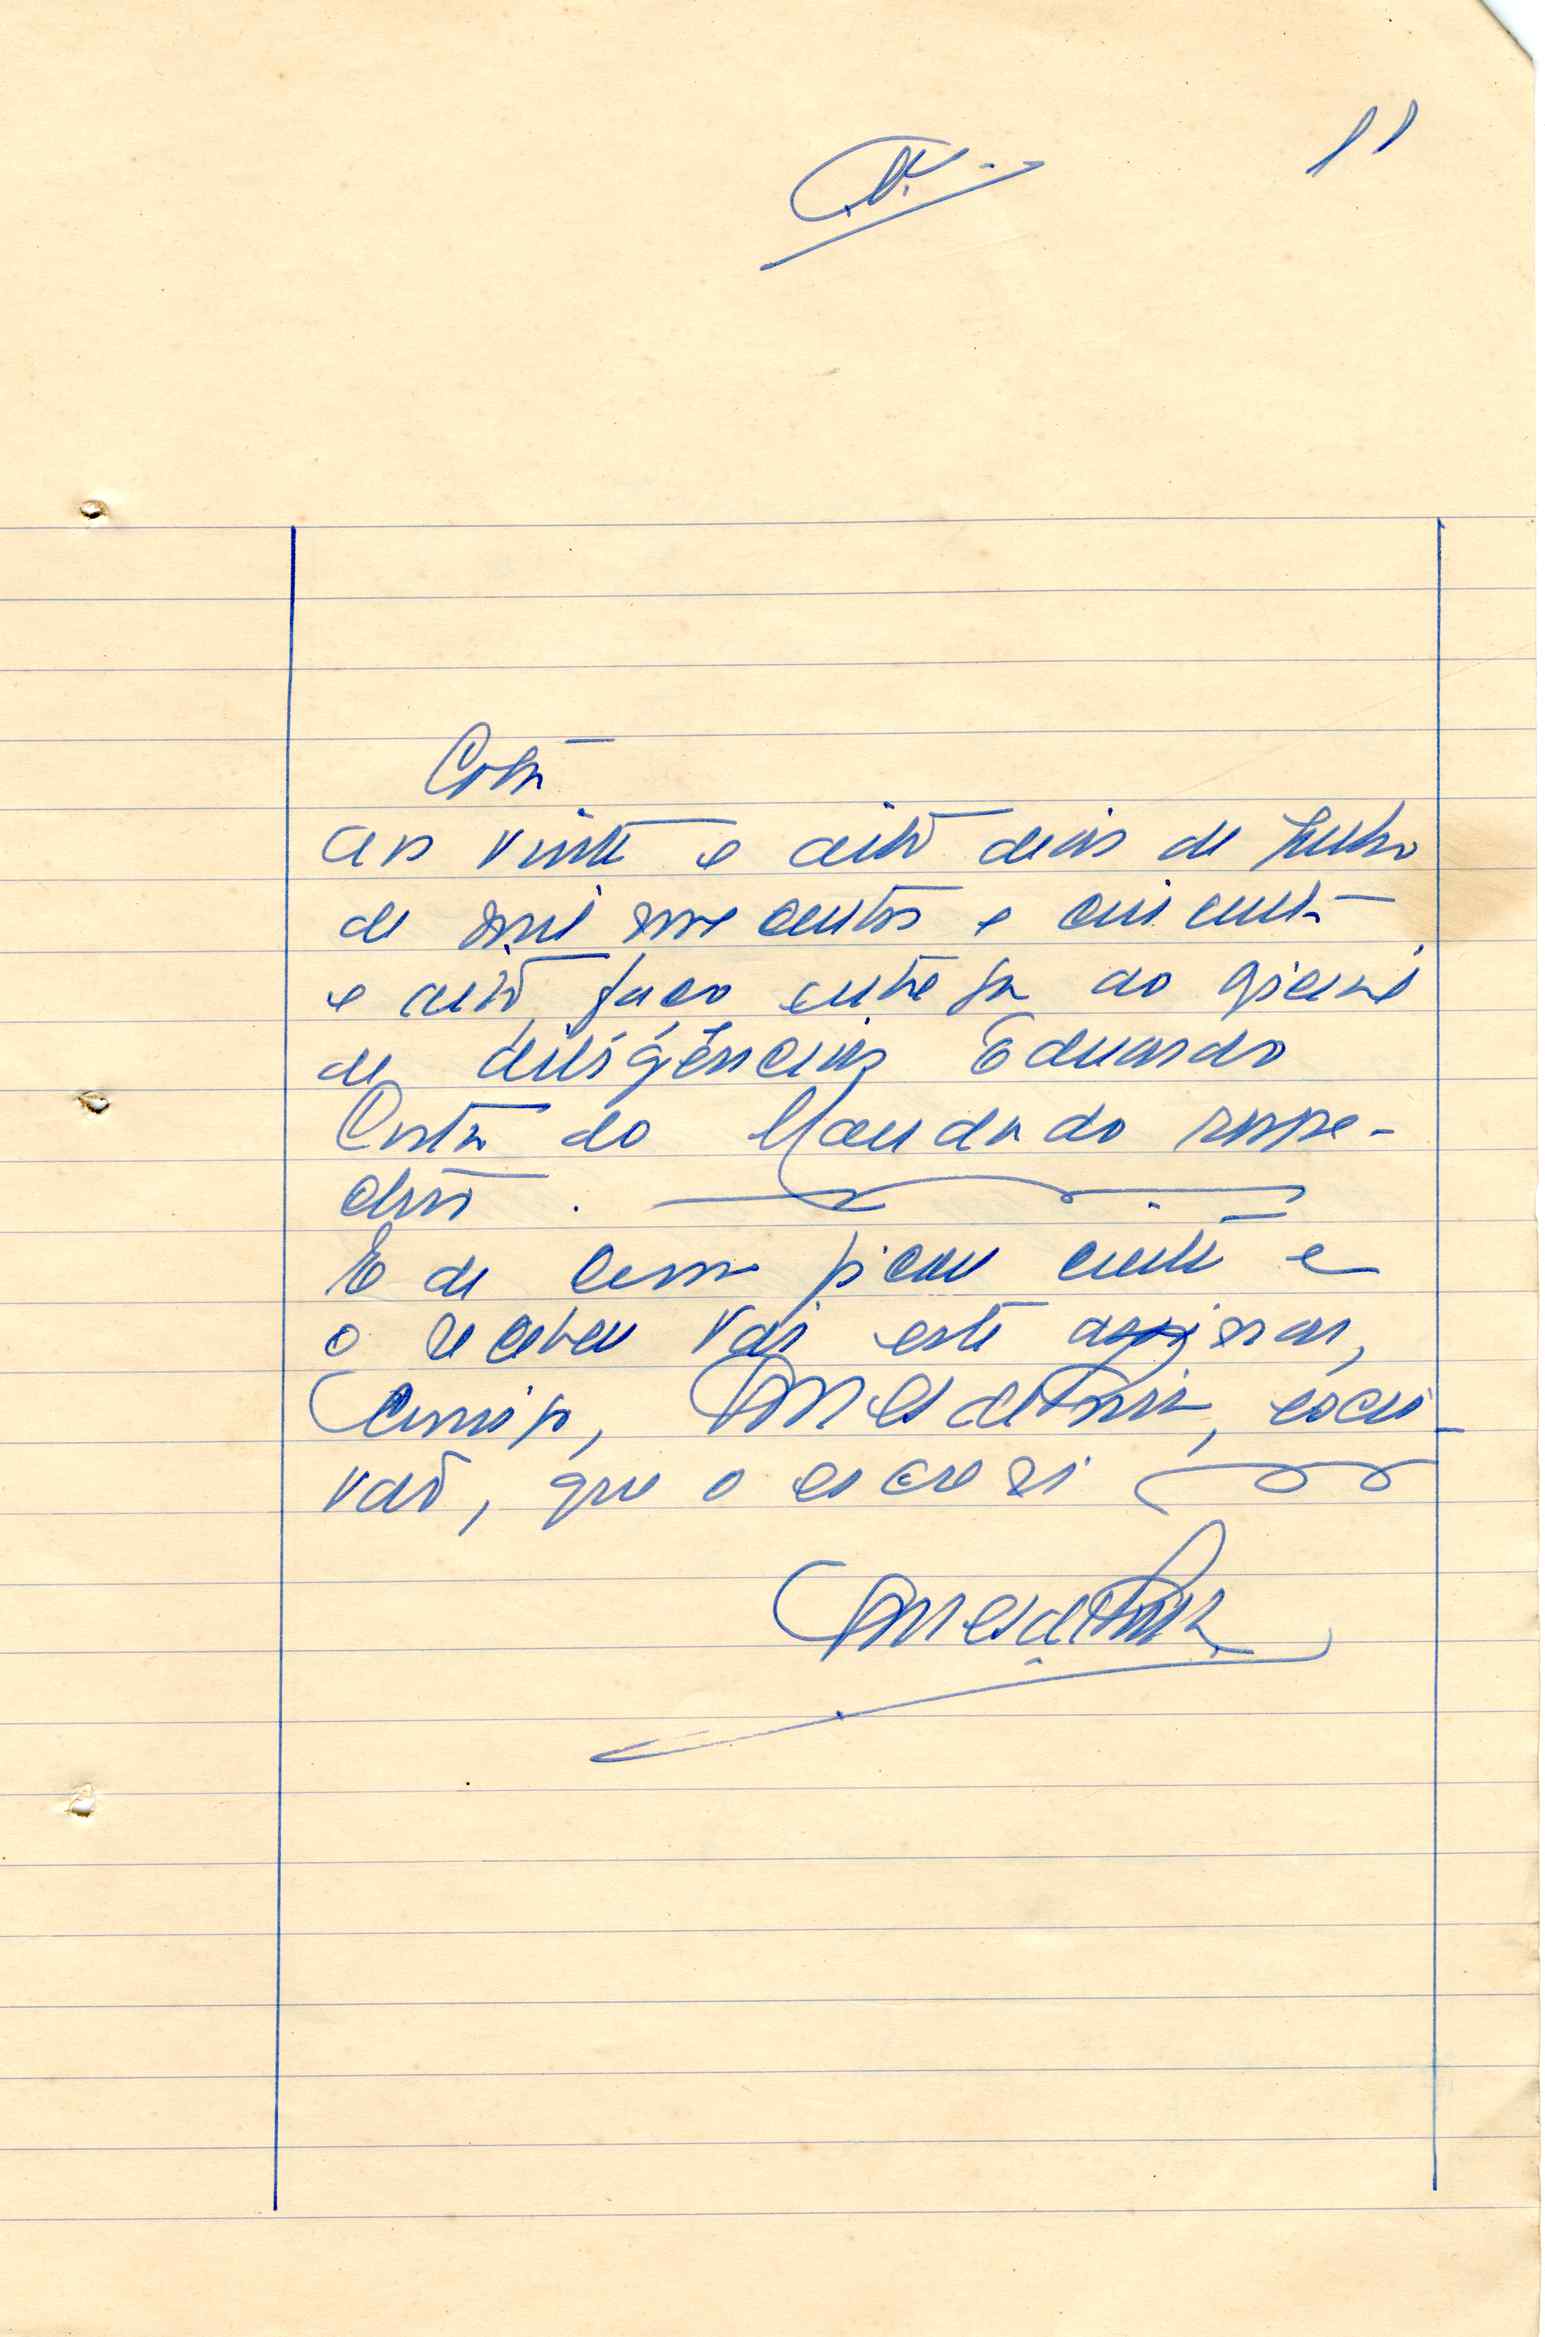 11
Cota
aos vinte e oito dias de Julho
de mil nove centos e cincenta
e oito, faço entrega ao oficial
de diligências Eduardo
Costa do Mandado respe-
ctivo.
E de como ficou ciente e
o recebeu vai este assinar,
Comigo, escri-
vão, que o escrevi